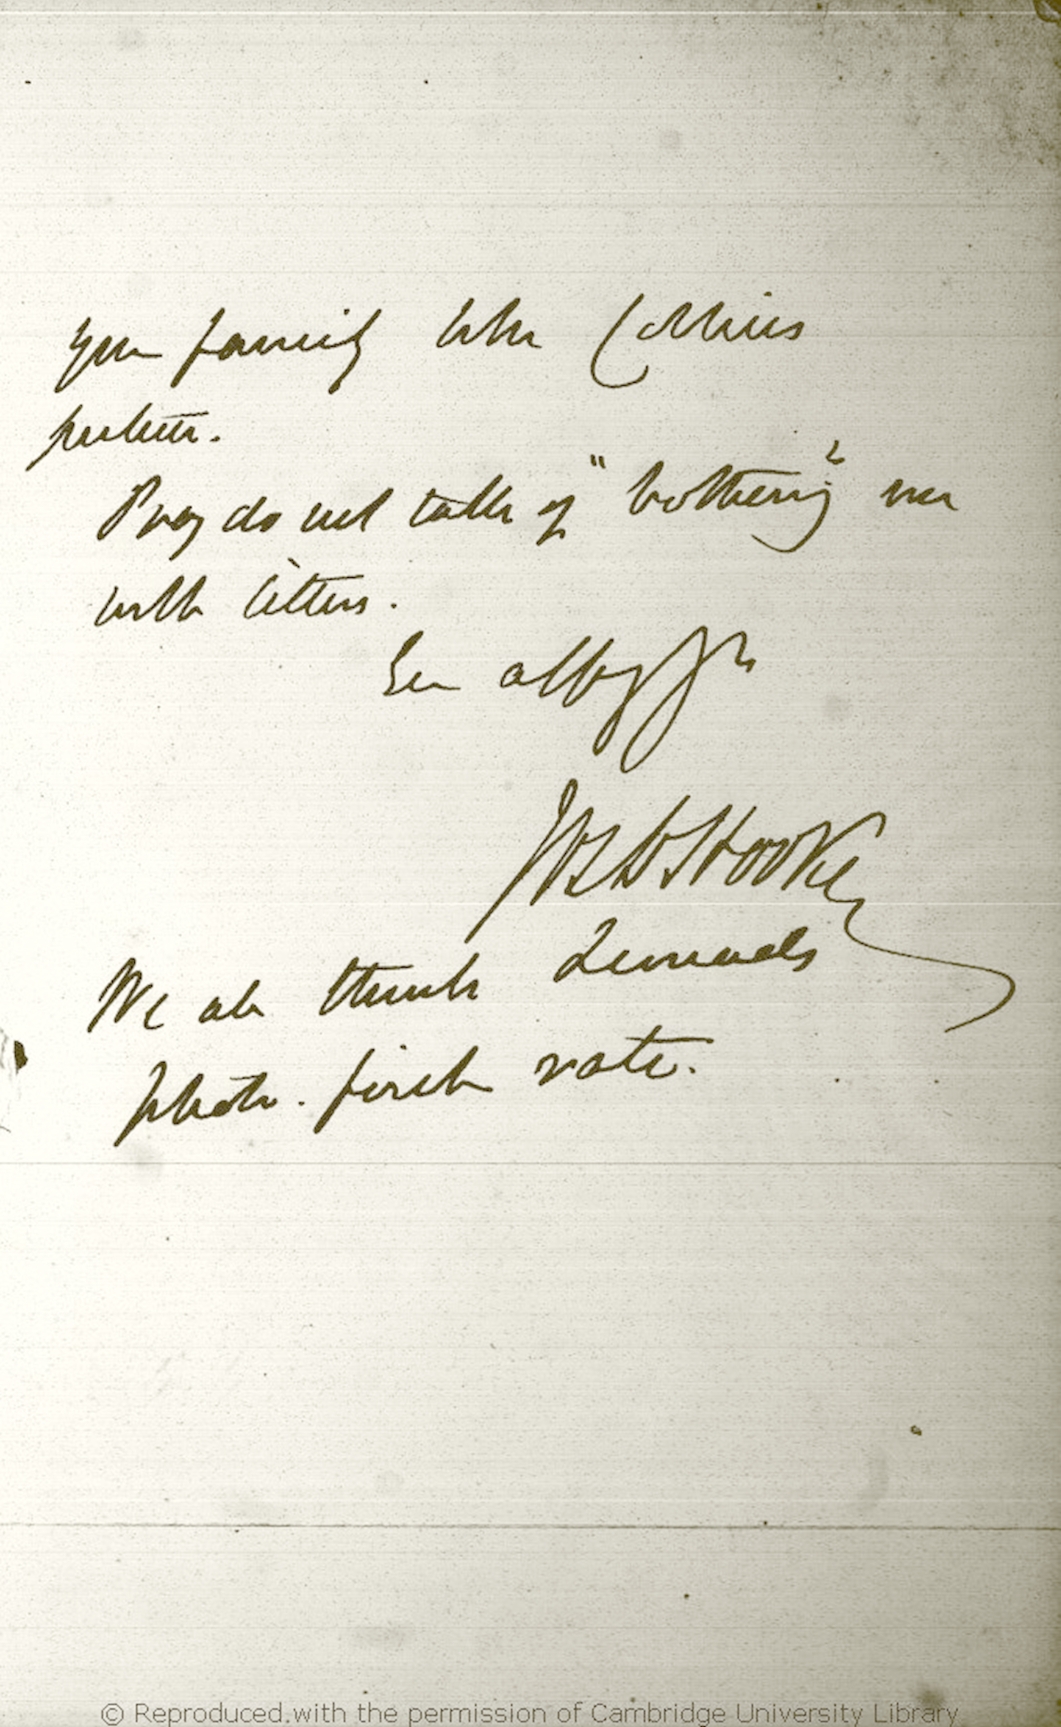 your family like Collier's
picture.
Pray do not talk of "bothering" me
with letters.
Ever affy yrs
Jos D Hooker
We all think Leonards
photo. first rate.
© Reproduced with the permission of Cambridge University Library